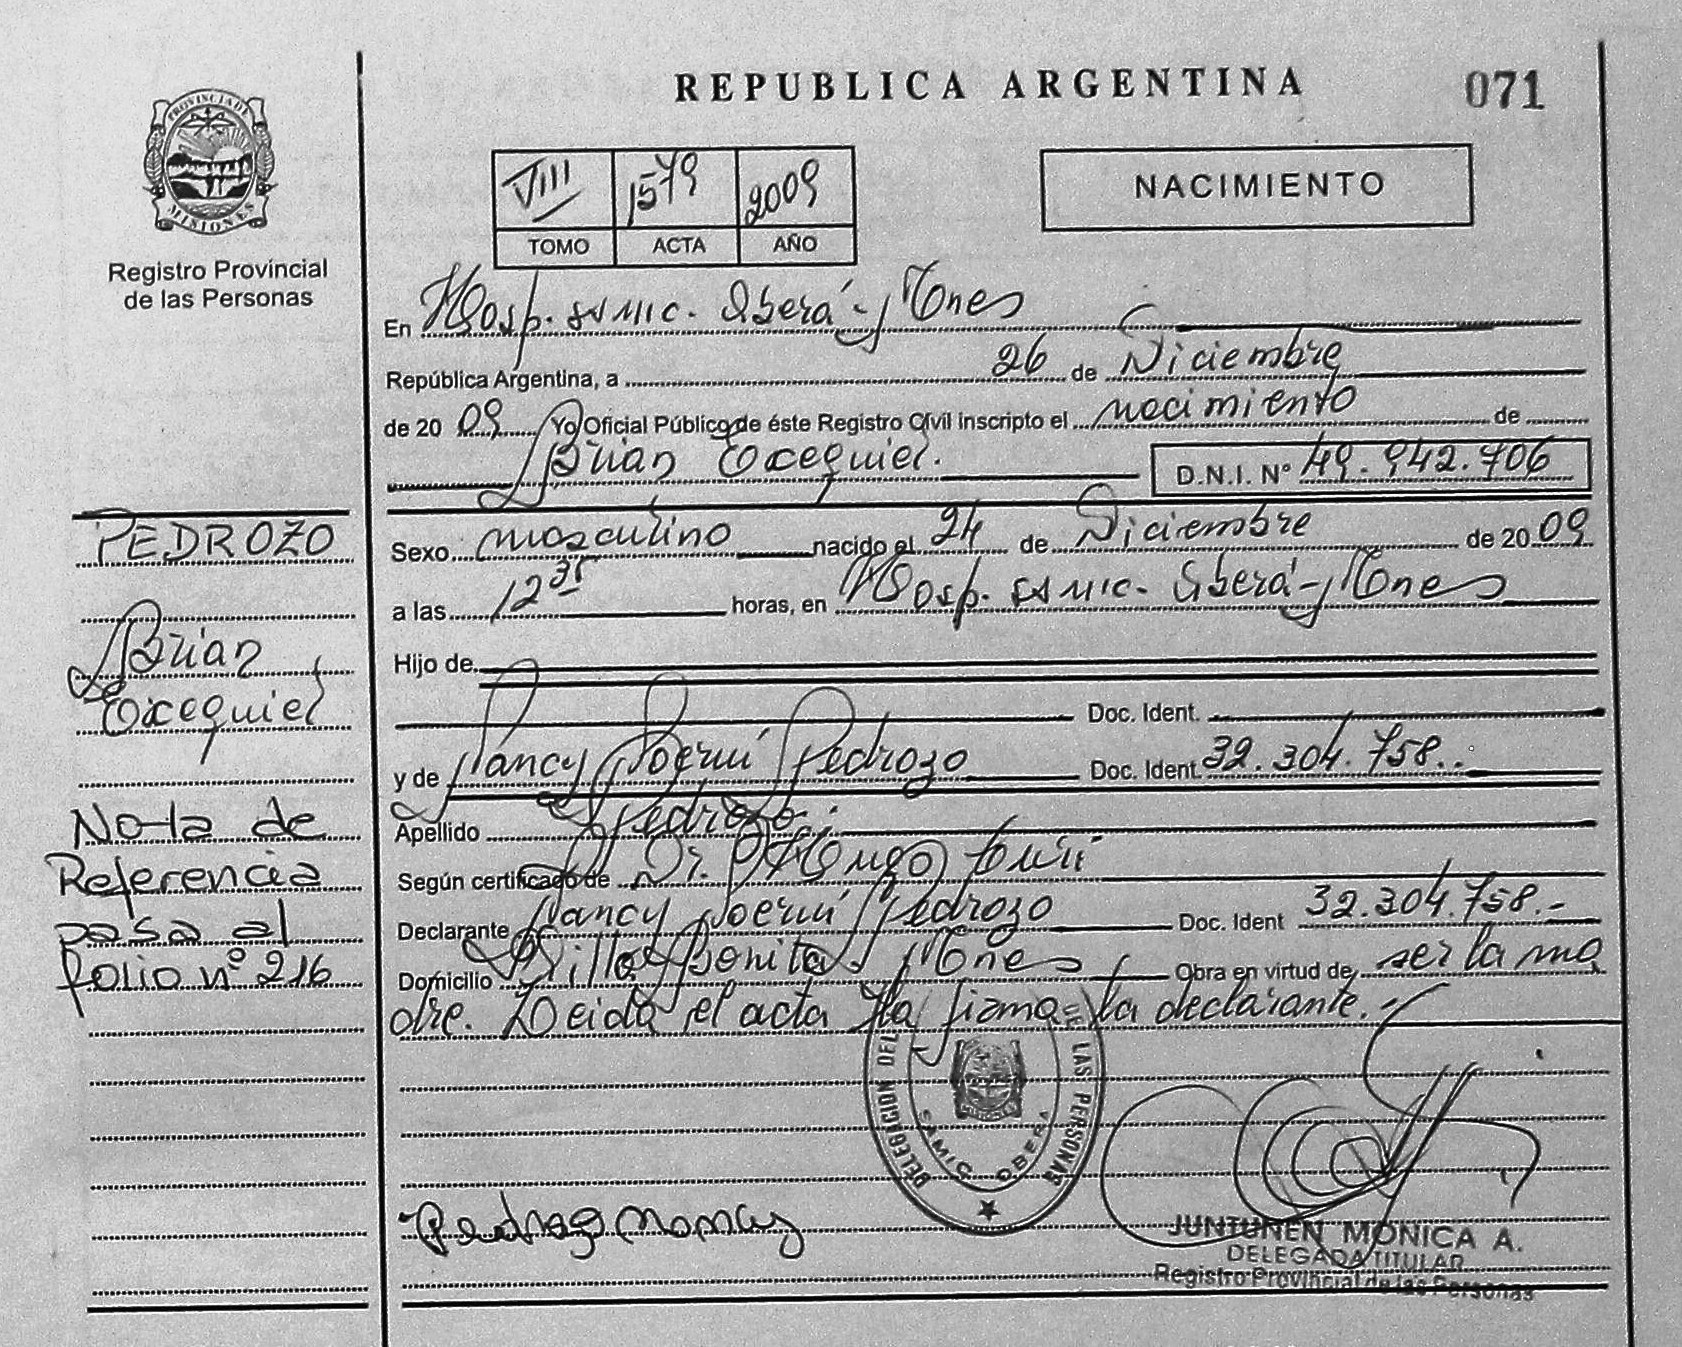 REPUBLICA ARGENTINA
071
PROVINCIA DE
MISIONES
Registro Provincial
de las Personas
VIII 1579 2009
TOMO ACTA AÑO
NACIMIENTO
En Hosp. SAMIC. Oberá - Mnes
República Argentina, a 26 de Diciembre
de 20 09 Yo Oficial Público de éste Registro Civil inscripto el nacimiento de
Brian Exequiel. D.N.I. Nº 49.942.706
PEDROZO
Brian
Exequiel
Nota de
Referencia
pasa al
folio nº 216
Sexo masculino nacido el 24 de Diciembre de 20 09
a las 12 35 horas, en Hosp. SAMIC. Oberá - Mnes
Hijo de
Doc. Ident.
y de Nancy Noemí Pedrozo Doc. Ident. 32.304.758.-
Apellido Pedrozo.
Según certificado de Dr. Hugo
Declarante Nancy Noemí Pedrozo Doc. Ident 32.304.758.-
Domicilio Villa Bonita Mnes Obra en virtud de ser la ma
dre. Leida el acta la firma la declarante.-
DELEGACION DEL LAS PERSONAS
SAMIC. OBERA
Pedrozo Nancy
JUNTUNEN MONICA A.
DELEGADA TITULAR
Registro Provincial de las Personas